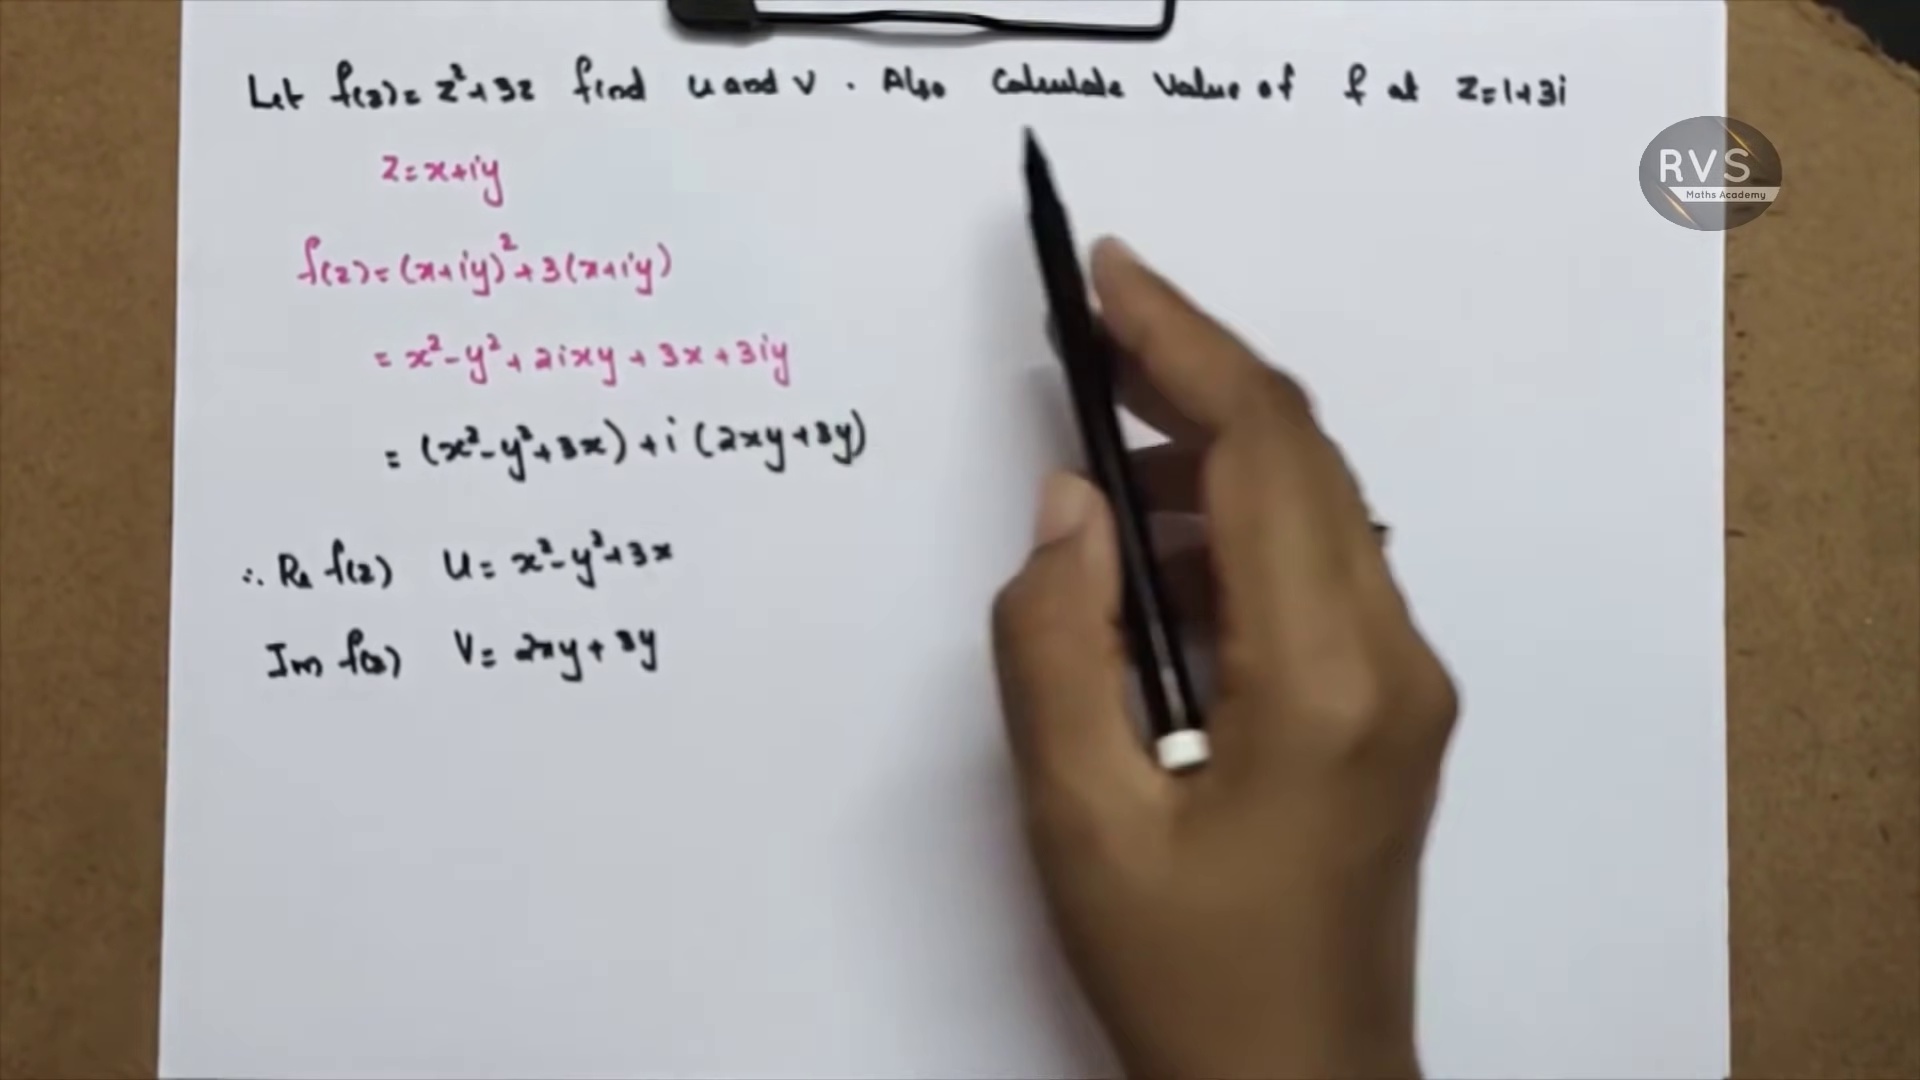 Let f(z) = z² + 3z find u and v . Also Calculate Value of f at z = 1+3i
RVS
Maths Academy
z = x+iy
f(z) = (x+iy)² + 3(x+iy)
= x² - y² + 2ixy + 3x + 3iy
= (x² - y² + 3x) + i (2xy + 3y)
∴ Re f(z) u = x² - y² + 3x
Im f(z) v = 2xy + 3y